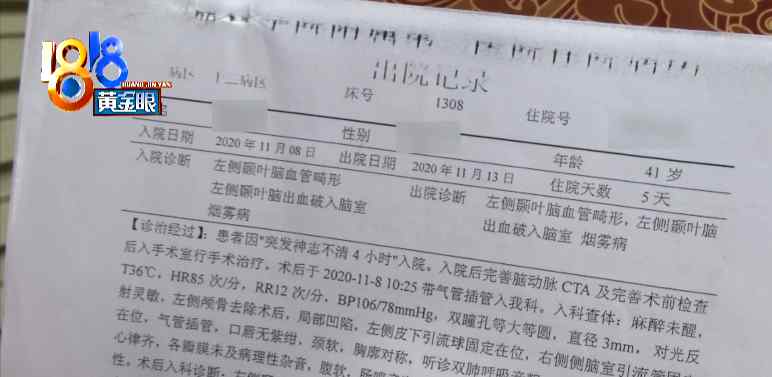 1818
HUANG JIN YAN
黄金眼
出院记录
病区
床号 1308 住院号
性别 年龄 41 岁
入院日期 2020 年 11 月 08 日 出院日期 2020 年 11 月 13 日 住院天数 5 天
入院诊断 左侧颞叶脑血管畸形 出院诊断 左侧颞叶脑血管畸形，左侧颞叶脑
左侧颞叶脑出血破入脑室 出血破入脑室 烟雾病
烟雾病
【诊治经过】：患者因"突发神志不清 4 小时"入院。入院后完善脑动脉 CTA 及完善术前检查
后入手术室行手术治疗。术后于 2020-11-8 10:25 带气管插管入我科。入科查体：麻醉未醒，
T36℃，HR85 次/分，RR12 次/分，BP106/78mmHg，双瞳孔等大等圆，直径 3mm，对光反
射灵敏，左侧颅骨去除术后，局部凹陷，左侧皮下引流球固定在位，右侧侧脑室引流管固定
在位，气管插管，口唇无紫绀，颈软，胸廓对称，听诊双肺呼吸音
心律齐，各瓣膜未及病理性杂音，腹软，肠鸣
性。术后入科诊断：左侧